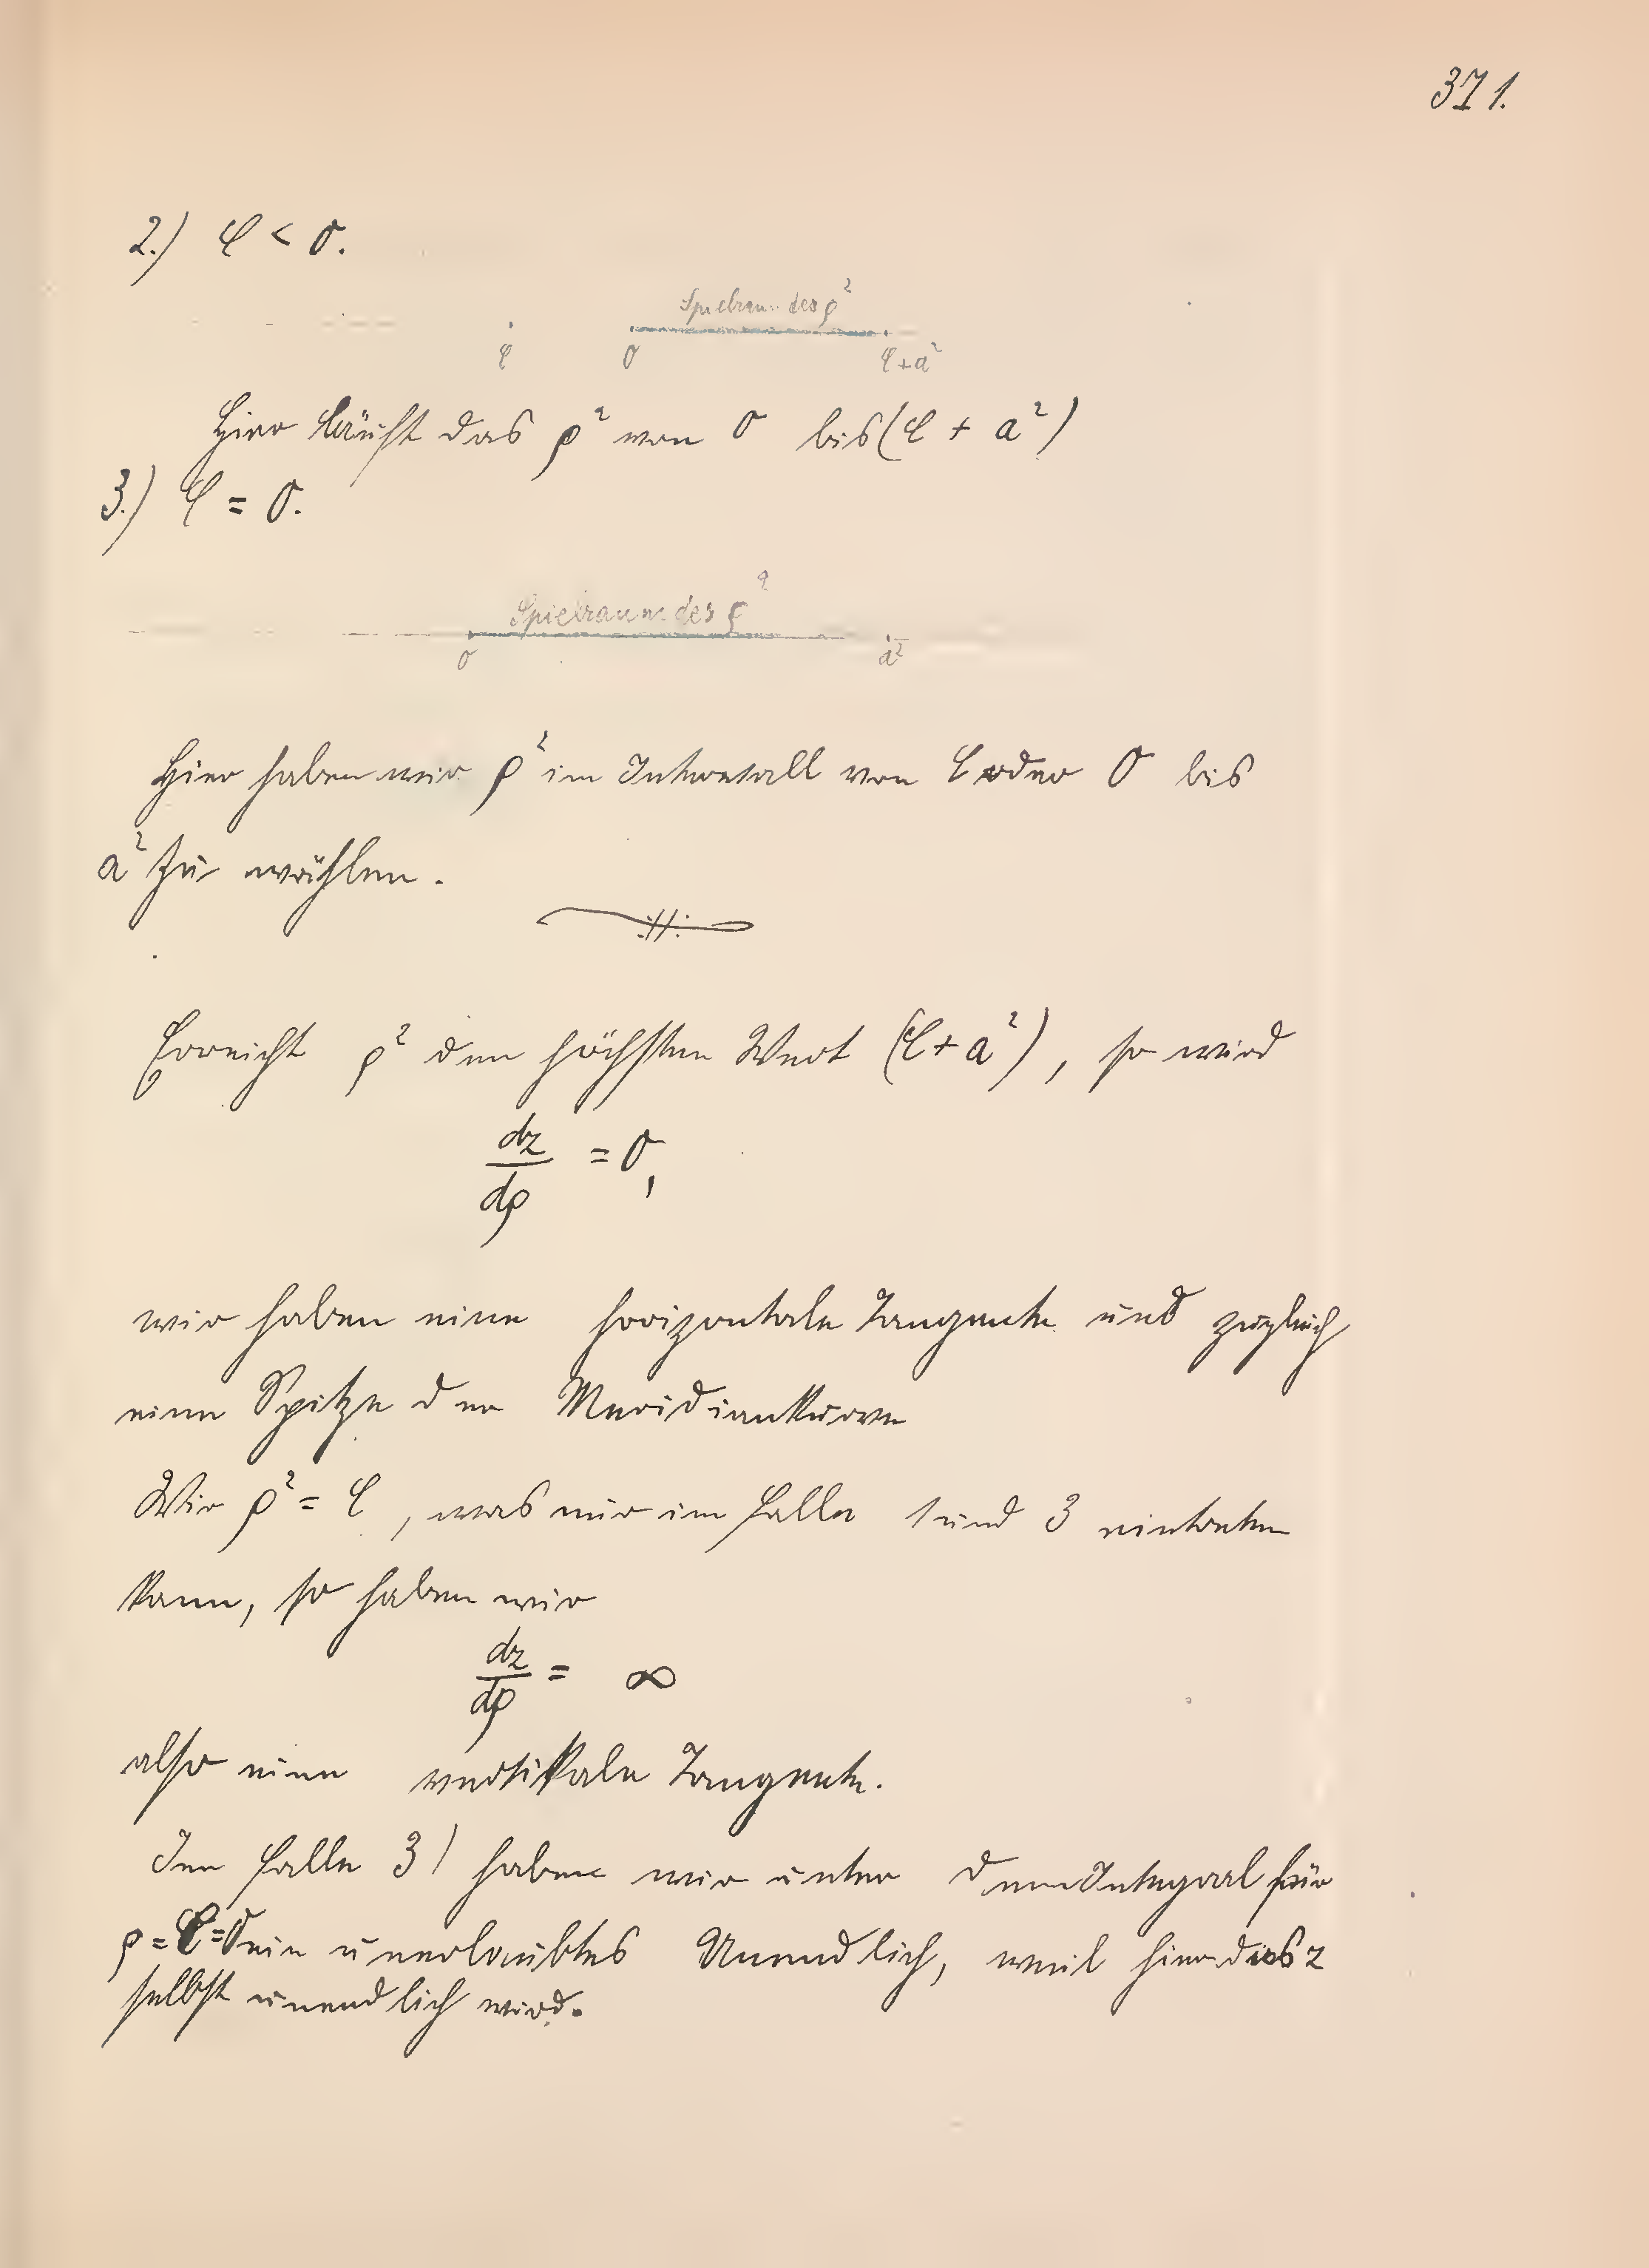 371.
2.) C < 0.
Spielraum des ρ²
C 0 C+a²
Hier läuft das ρ² von 0 bis (C + a²)
3.) C = 0.
Spielraum des ρ²
0 a²
Hier haben wir ρ² im Intervall von C oder 0 bis
a² zu wählen.
Erreicht ρ² den höchsten Wert (C + a²), so wird
dz/dρ = 0,
wir haben eine horizontale Tangente und zugleich
eine Spitze der Meridiankurve
Wir ρ² = C, was nur im Falle 1 und 3 eintreten
kann, so haben wir
dz/dρ = ∞
also eine vertikale Tangente.
Im Falle 3) haben wir unter dem Integral für
ρ = C = 0 ein unerlaubtes Unendlich, weil hier das z
selbst unendlich wird.